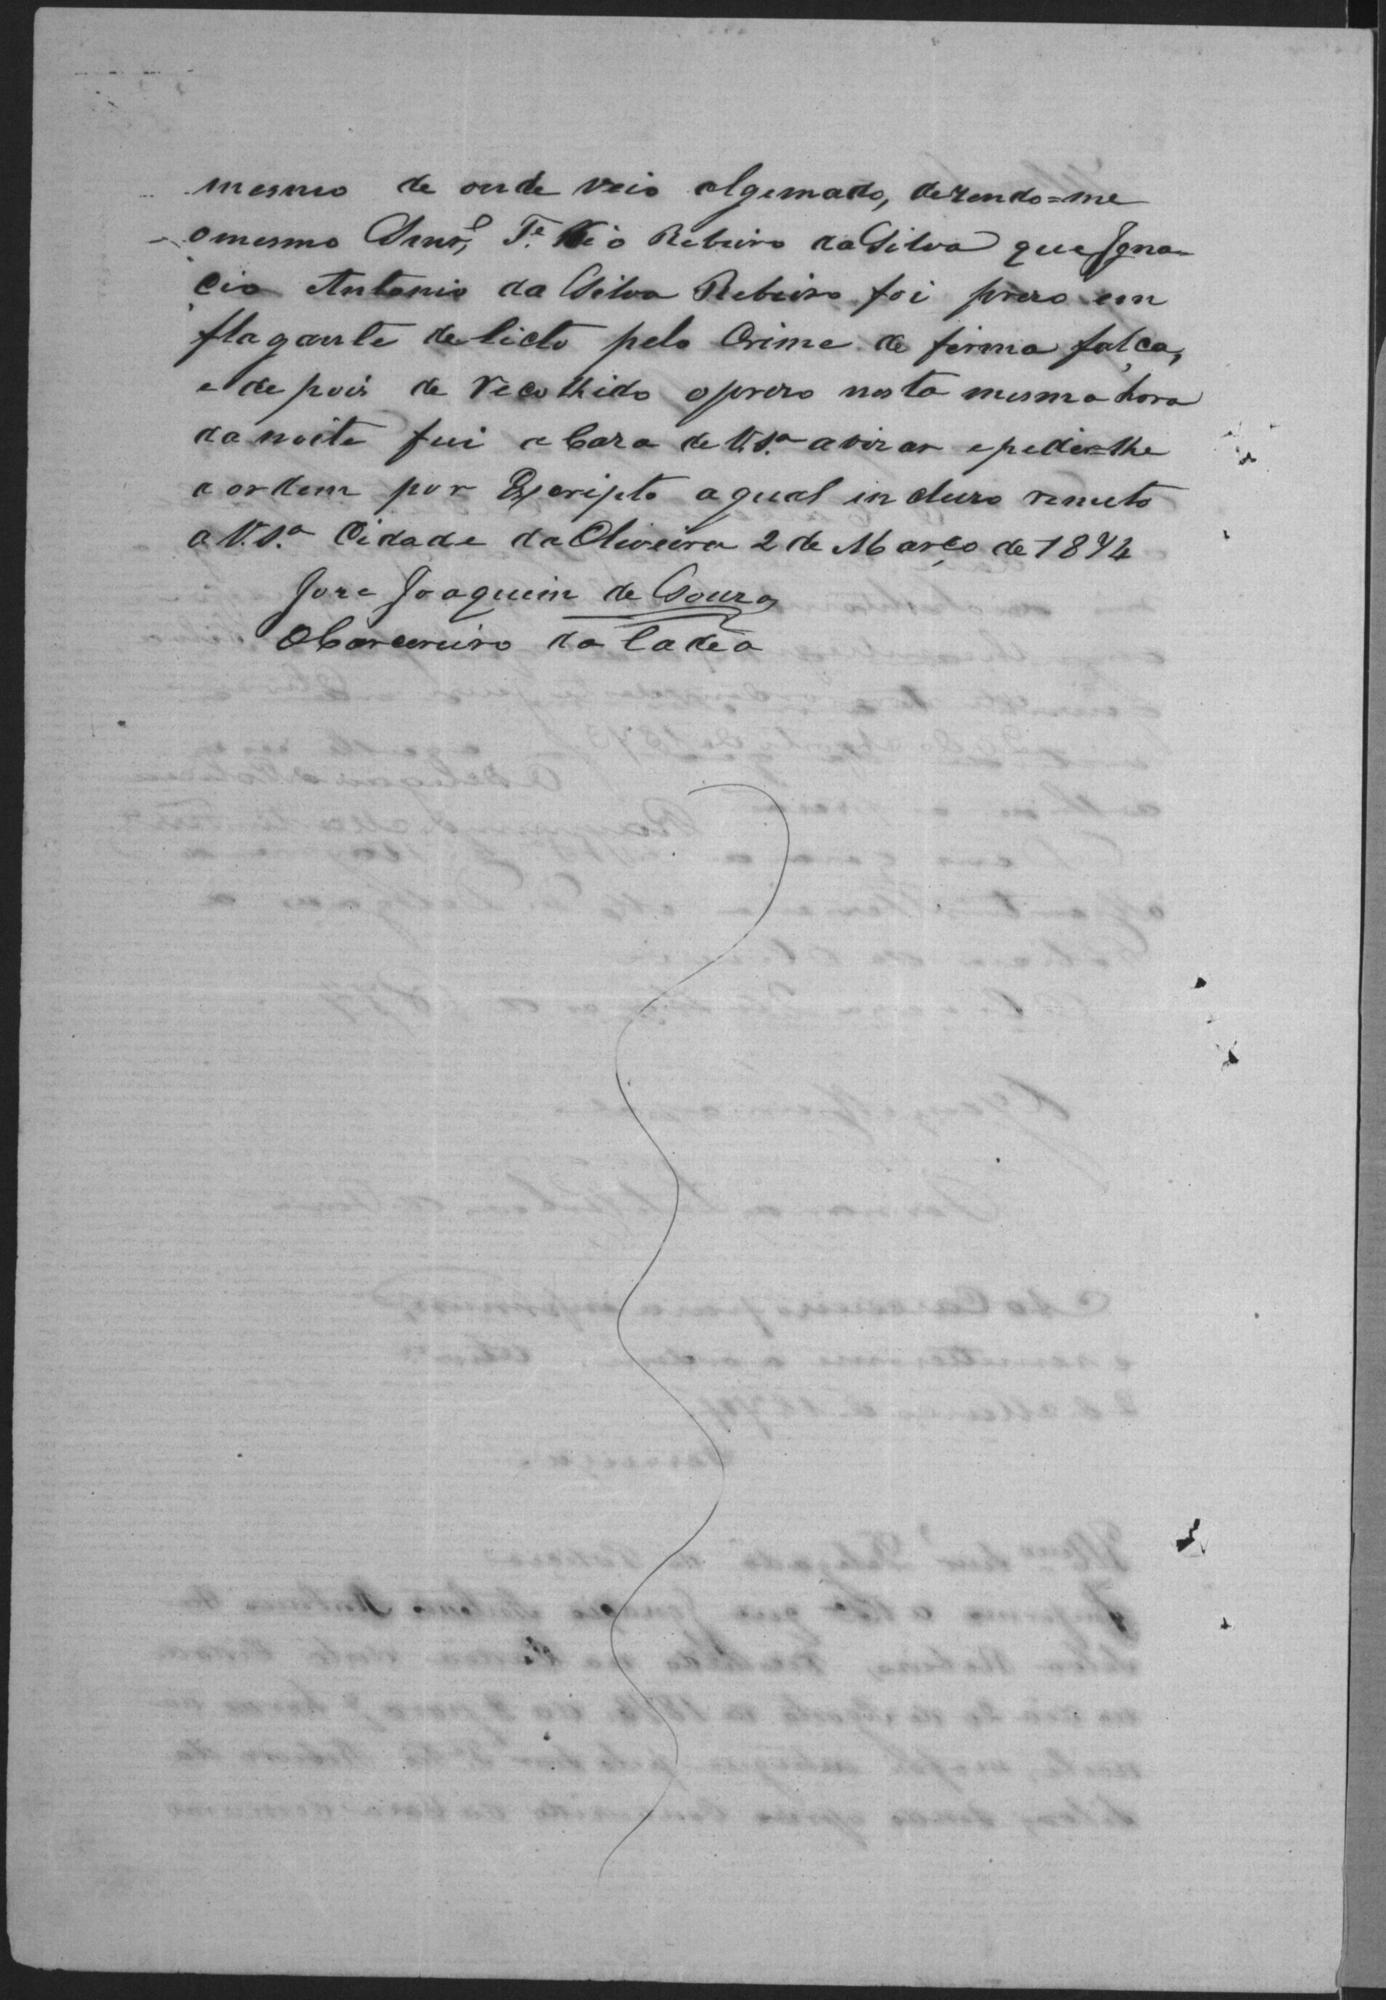 mesmo de onde veio algemado, dezendo=me
omesmo Senr. Te. Ribeiro da Silva que Igna-
cio Antonio da Silva Ribeiro foi prezo em
flagante delicto pelo Crime de firma falça,
e de pois de Recolhido oprezo nesta mesma hora
da noite fui a Caza de V.S.ª avizar epedir=lhe
a ordem por Escripto aqual incluzo remeto
a V.S.ª Cidade da Oliveira 2 de Março de 1874
Joze Joaquim de Souza
OCarcereiro da Cadêa